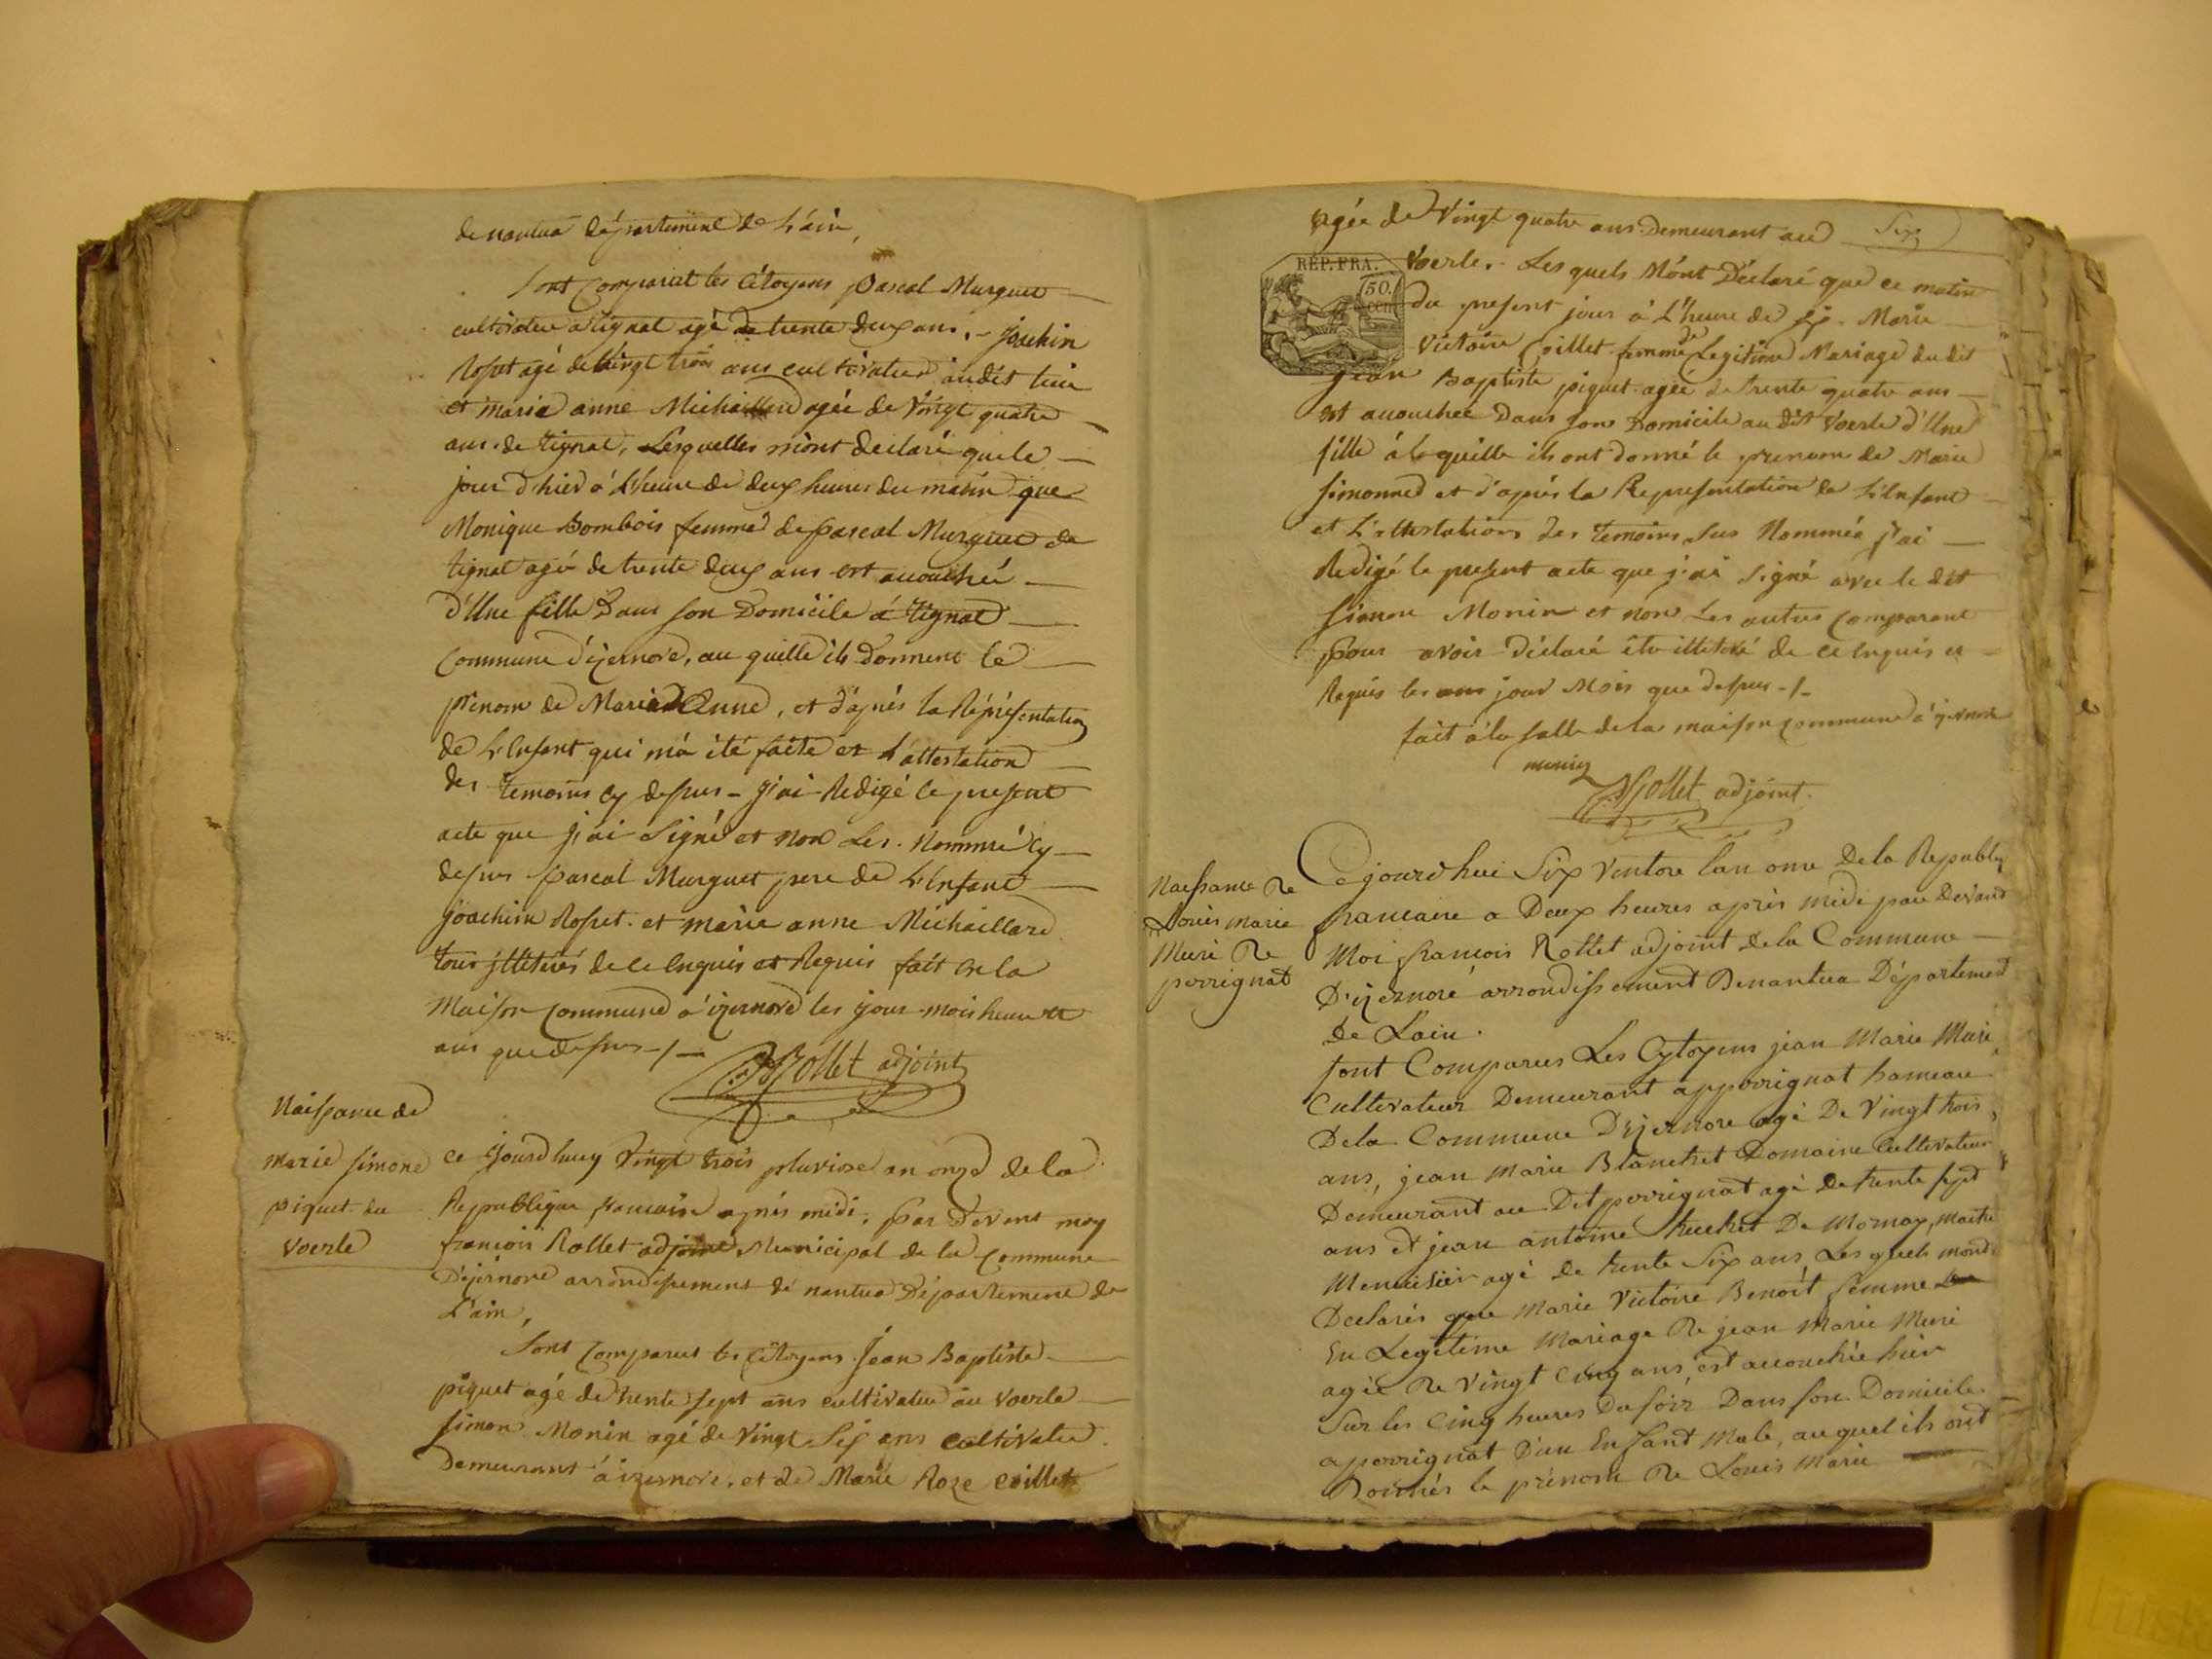 de nantua département de L'ain,
Sont Comparut les Citoyens Pascal Murguet
cultivateur a tignat agé de trente deux ans. - joachin
Rosset agé de vingt trois ans cultivateur au dit lieu
et marie anne Michaillard agée de Vingt quatre
ans. de tignat, Lesquelles mònt declaré que le
jour d'hier à L'heure de deux heures du matin que
Monique Bombois femme de pascal Murguet de
tignat agée de trente deux ans est accouchée
d'Une fille Dans son Domicile à tignat
Commune d'izernore, au quelle ils donnent le
prénom de Marie Anne, et d'après la Réprésentation
de L'Enfant qui m'a été faite et L'attestation
des temoins Cy dessus - J'ai Redigé le present
acte que j'ai Signé et non Les. Nommé Cy
dessus Pascal Murguet pere de L'Enfant
joachim Rosset. et marie anne Michaillard
tous jlletérés de ce Enquis et Requis fait en la
Maison Commune à izernore les jour mois heure et
ans que dessus -/-
Rollet adjoint
Naissance de
marie simone
piquet du
Voerle
ce jourdhuy Vingt trois pluviose an onze de la
Republique francaise après midi, par Devant moy
francois Rollet adjoint Municipal de la Commune
D'izernore arrondissement de nantua Département de
L'ain,
Sont Comparut les Citoyens Jean Baptiste
piquet agé de trente sept ans cultivateur au Voerle
Simon Monin agé de Vingt Six ans cultivateur
Demeurant à izernore. et de Marie Roze coillet
agée de Vingt quatre ans Demeurant au
Six
RÉP. FRA.
50.
CEN
Voerle. - Les quels M'ont Déclaré que ce matin
du present jour à L'heure de six. Marie
Victoire Coillet femme de Legitime Mariage du dit
Jean Baptiste piquet agée de trente quatre ans
est accouchée Dans son Domicile au dit Voerle d'Une
fille à la quille ils ont donné le prenom de Marie
Simonne et d'après la Representation de L'Enfant
et L'attestation des temoins sus Nommés j'ai
Redigé le present acte que j'ai Signé avec le dit
Simon Monin et non Les autres Comparant
pour avoir Déclaré être illitéré de ce Enquis et
Requis les ans jour Mois que dessus -/-
fait à la salle de la maison Commune à izernore
munin
Rollet adjoint.
Naissance De
Louis marie
Muri De
perrignat
Cejourd'hui Six Ventose lan onze De la Republiq
francaise a Deux heures après midi par Devand
Moi francois Rollet adjoint de la Commune
D'izernore arrondissement Denantua Département
De Lain.
sont Comparues Les Cytoyens jean Marie Muri,
Cultivateur Demeurant apperrignat hameau
De la Commune D'izernore agé De Vingt trois,
ans, jean Marie Blanchet Domaine Cultivateur
Demeurant au Dit perrignat agé De trente sept
ans et jean antoine huchet De Mornay, Maitre
Menuisier agé De trente Six ans, Les quels mond
Declarés que Marie Victoire Benoit femme
En Legitime Mariage De jean Marie Muri
agée De Vingt Cinq ans, est accouchée hier
Sur les Cinq heures Du soir Dans son Domicile
aperrignat D'un Enfant Male, au quel ils ont
Donnés le prénom De Louis Marie